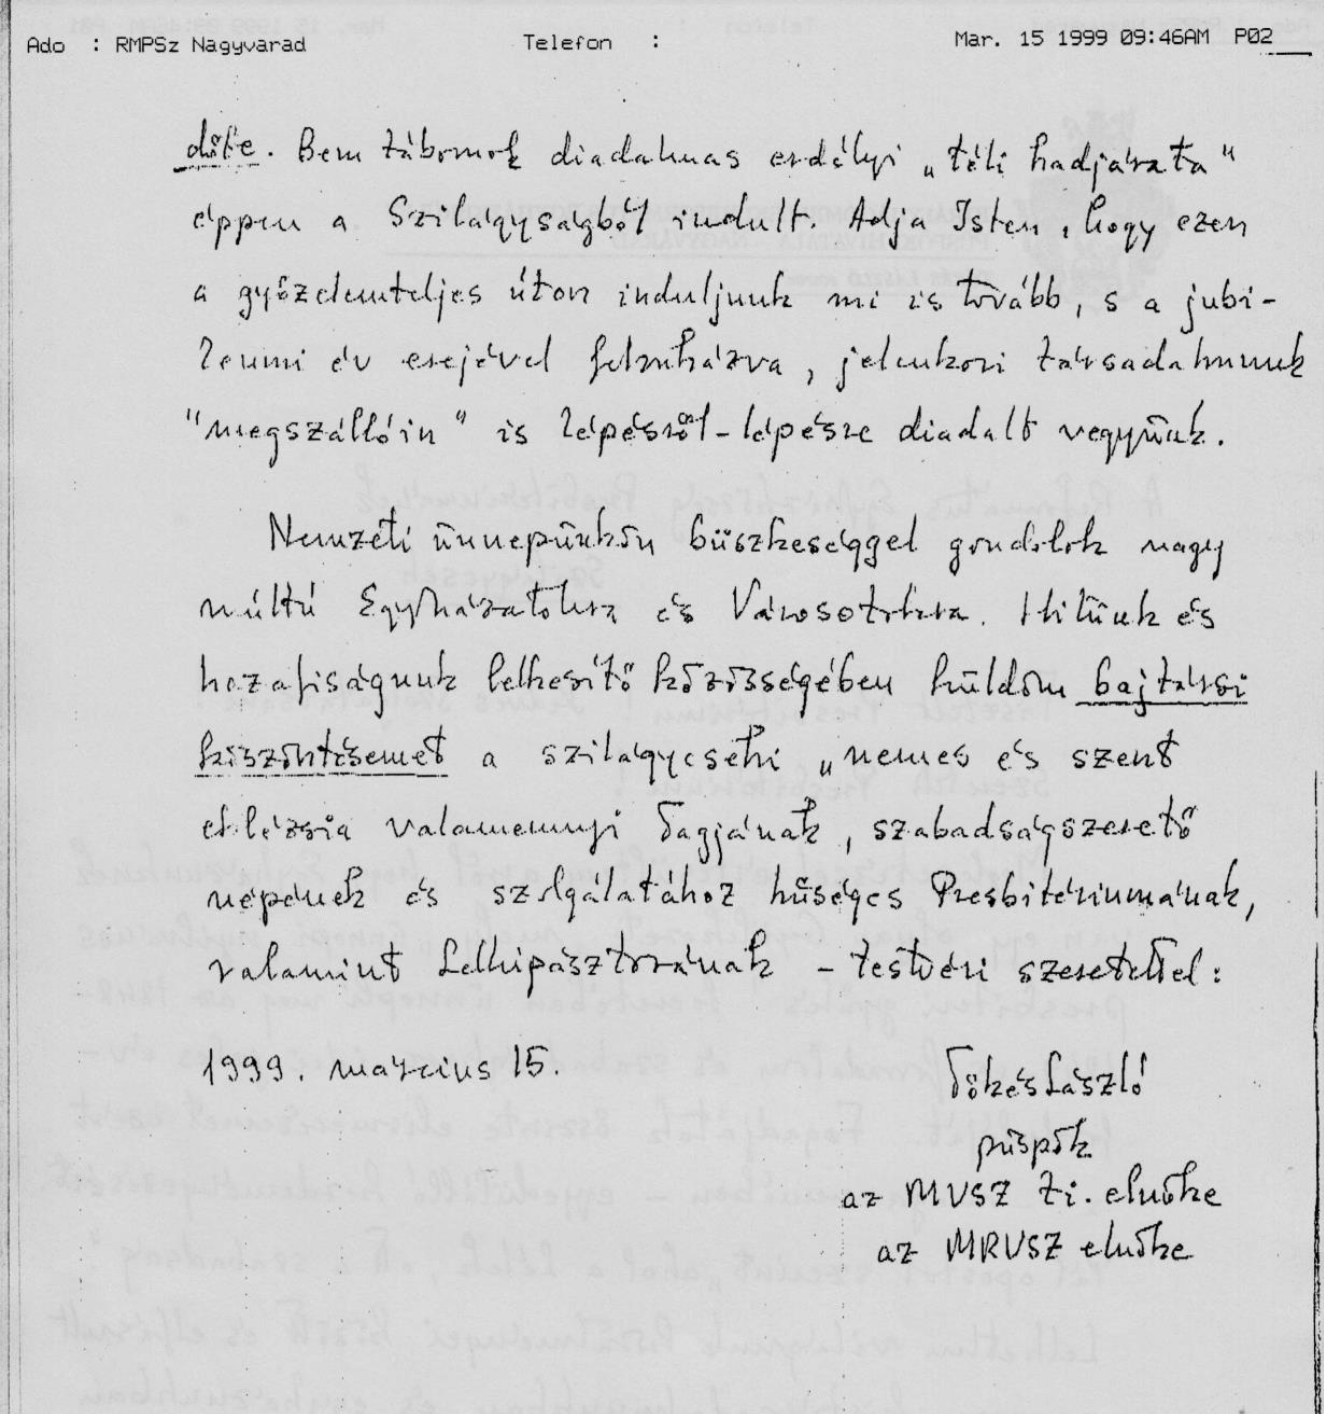 Ado : RMPSz Nagyvarad Telefon : Mar. 15 1999 09:46AM P02
dőte. Bem tábornok diadalmas erdélyi „téli hadjárata"
éppen a Szilágyságból indult. Adja Isten, hogy ezen
a győzelemteljes úton induljunk mi is tovább, s a jubi-
leumi év erejével felruházva, jelenkori társadalmunk
"megszállóin" is lépésről-lépésre diadalt vegyünk.
Nemzeti ünnepünkön büszkeséggel gondolok nagy
múltú Egyházatokra és Városotokra. Hitünk és
hazafiságunk lelkesítő közösségében küldöm bajtársi
köszöntésemet a szilágycsehi „nemes és szent
eklézsia valamennyi tagjának, szabadságszerető
népének és szolgálatához hűséges Presbitériumának,
valamint Lelkipásztorának – testvéri szeretettel:
1999. március 15.
Tőkés László
püspök
az MVSZ ti. elnöke
az MRVSZ elnöke